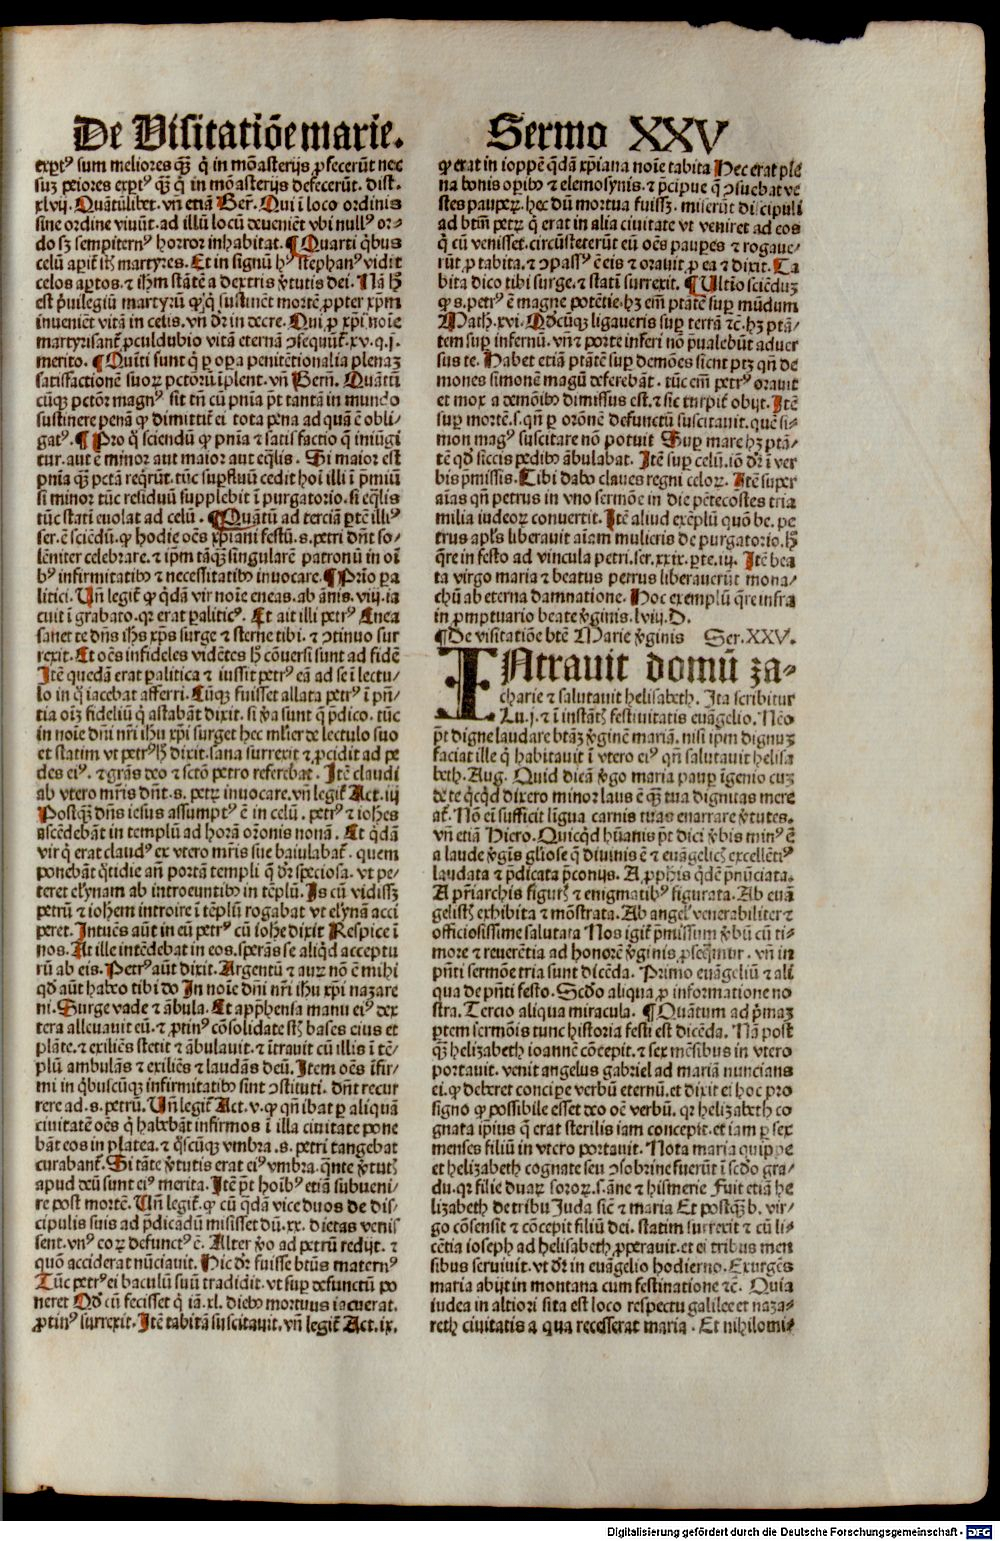 De Visitatiōe marie.
Sermo XXV
exꝑtꝰ sum meliores qꝫ̄ q̇ in mōasterijs ꝓfecerūt nec
suꝫ peiores exꝑtꝰ qꝫ̄ q̇ in mōasterijs defecerūt. dist.
xlvij. Quātūlibet. vn̄ etiā Ber̄. Qui ī loco ordinis
sine ordine viuūt. ad illū locū deueniēt vbi nullꝰ or⸗
do sꝫ sempiternꝰ horror inhabitat. ¶ Quarti q̇bus
celū aꝑit̄ sūt martyres. Et in signū hꝰ stephanꝰ vidit
celos aꝑtos. ⁊ ih̄m stātē a dextris v̓tutis dei. Nā h̄
est p̄uilegiū martyrū ꝙ q̇ sustinēt mortē ꝓpter xp̄m
inueniēt vitā in celis. vn̄ dr̄ in decre. Qui ꝓ xp̄i noīe
martyrisant̄ ꝓculdubio vitā eternā ꝯsequūt̄. xv. q. j.
merito. ¶ Quīti sunt q̇ ꝑ oꝑa penitētionalia plenaꝫ
satisfactionē suoꝝ pctōrū īplent. vn̄ Bern̄. Quātū
cūqꝫ pctōr magnꝰ sit tn̄ cū pnīa pt̄ tantā in mundo
sustinere penā ꝙ dimittit̄ ei tota pena ad quā ē obli⸗
gatꝰ. ¶ Pro q̊ sciendū ꝙ pnīa ⁊ satisfactio q̄ iniūgi
tur. aut ē minor aut maior aut eq̄lis. Si maior est
pnīa qꝫ̄ pctā req̇rūt. tūc suꝑfluū cedit hoī illi ī p̄miū
si minor tūc residuū supplebit ī purgatorio. si eq̄lis
tūc statī euolat ad celū. ¶ Quātū ad terciā ꝑtē illiꝰ
ser. ē sciēdū. ꝙ hodie oēs xp̄iani festū. s. petri dn̄t so⸗
lēniter celebrare. ⁊ ip̄m tāqꝫ̄ singularē patronū in oī
bꝰ infirmitatibꝰ ⁊ necessitatibꝰ inuocare. ¶ Prīo ꝑa
litici. Vn̄ legit̄ ꝙ q̇dā vir noīe eneas. ab ānis. viij. ia
cuit ī grabato. qr erat ꝑaliticꝰ. Et ait illi petrꝰ Enea
sanet te dn̄s ih̄s xp̄s surge ⁊ sterne tibi. ⁊ ꝯtinuo sur
rexit. Et oēs infideles vidētes h̄ cōuersi sunt ad fidē
Itē quedā erat ꝑalitica ⁊ iussit petrꝰ eā ad se ī lectu⸗
lo in q̊ iacebat afferri. Cūqꝫ fuisset allata petrꝰ ī pn̄⸗
tia oīꝫ fideliū q̇ astabāt dixit. si v̓a sunt q̄ p̄dico. tūc
in noīe dn̄i nr̄i ih̄u xp̄i surget hec mlier de lectulo suo
et statim vt petrꝰ h̄ dixit. sana surrexit ⁊ ꝓcidit ad pe
des eiꝰ. ⁊ grās deo ⁊ sctō petro referebat. Itē claudi
ab vtero mr̄is dn̄t. s. petꝝ inuocare. vn̄ legit̄ Act. iij
Postqꝫ̄ dn̄s iesus assumptꝰ ē in celū. petrꝰ ⁊ ioh̄es
ascēdebāt in templū ad horā or̄onis nonā. Et q̇dā
vir q̇ erat claudꝰ ex vtero mr̄is sue baiulabat̄. quem
ponebāt q̊tidie an̄ portā templi q̄ dr̄ speciosa. vt pe⸗
teret elynam ab introeuntibꝰ in tēplū. Is cū vidissꝫ
petrū ⁊ ioh̄em introire ī tēplū rogabat vt elynā acci
peret. Intuēs aūt in eū petrꝰ cū ioh̄e dixit Respice ī
nos. At ille intēdebat in eos. sperās se aliq̇d acceptu
rū ab eis. Petrꝰ aūt dixit. Argentū ⁊ auꝝ nō ē mihi
qd̄ aūt habeo tibi do In noīe dn̄i nr̄i ih̄u xp̄i nazare
ni. Surge vade ⁊ ābula. Et app̄hensa manu eiꝰ dex
tera alleuauit eū. ⁊ ꝓtinꝰ cōsolidate st̄ bases eius et
plāte. ⁊ exiliēs stetit ⁊ ābulauit. ⁊ ītrauit cū illis ī tē⸗
plū ambulās ⁊ exiliēs ⁊ laudās deū. Item oēs īfir⸗
mi in q̇buscūqꝫ infirmitatibꝰ sint ꝯstituti. dn̄t recur
rere ad. s. petrū. Vn̄ legit̄ Act. v. ꝙ qn̄ ibat ꝑ aliquā
ciuitatē oēs q̇ habebāt infirmos ī illa ciuitate pone
bāt eos in platea. ⁊ q̊scūqꝫ vmbra. s. petri tangebat
curabant̄. Si tāte v̓tutis erat eiꝰ vmbra. q̄nte v̓tut̄
apud deū sunt eiꝰ merita. Itē pt̄ hoībꝰ etiā subueni⸗
re post mortē. Vn̄ legit̄. ꝙ cū q̇dā vice duos de dis⸗
cipulis suis ad p̄dicādū misisset dū. xx. dietas venis
sent. vnꝰ eoꝝ defunctꝰ ē. Alter v̓o ad petrū redijt. ⁊
quō acciderat nūciauit. Hic dr̄ fuisse btūs maternꝰ
Tūc petrꝰ ei baculū suū tradidit. vt suꝑ defunctū po
neret Qd̄ cū fecisset q̇ iā. xl. diebꝰ mortuus iacuerat.
ꝓtinꝰ surrexit. Itē tabitā suscitauit. vn̄ legit̄ Act. ix.
ꝙ erat in ioppē q̄dā xp̄iana noīe tabita Hec erat ple
na bonis oꝑibꝰ ⁊ elemosynis. ⁊ p̄cipue q̄ ꝯsuebat ve
stes pauꝑeꝝ. hec dū mortua fuissꝫ. miserūt discipuli
ad btm̄ petꝝ q̇ erat in alia ciuitate vt veniret ad eos
q̇ cū venisset. circūsteterūt eū oēs pauꝑes ⁊ rogaue⸗
rūt ꝓ tabita. ⁊ ꝯpassꝰ ē eis ⁊ orauit ꝓ ea ⁊ dixit. Ta
bita dico tibi surge. ⁊ statī surrexit. ¶ Vltīo sciēduꝫ
ꝙ s. petrꝰ ē magne potētie. hꝫ em̄ ptātē suꝑ mūdum
Math. xvi. Qd̄cūqꝫ ligaueris suꝑ terrā ⁊c̄. hꝫ ptā⸗
tem suꝑ infernū. vn̄ ⁊ porte inferi nō p̄ualebūt aduer
sus te. Habet etiā ptātē suꝑ demōes sicut ptꝫ qn̄ de
mones simonē magū deferebāt. tūc em̄ petrꝰ orauit
et mox a demōibꝰ dimissus est. ⁊ sic turpit̄ obijt. Itē
suꝑ mortē. s. qn̄ ꝑ or̄onē defunctū suscitauit. quē si⸗
mon magꝰ suscitare nō potuit Suꝑ mare hꝫ ptā⸗
tē qd̄ siccis pedibꝰ ābulabat. Itē suꝑ celū. iō dr̄ ī ver
bis p̄missis. Tibi dabo claues regni celoꝝ. Itē super
aīas qn̄ petrus in vno sermōe in die pētecostes tria
milia iudeoꝝ conuertit. Itē aliud exēplū quō be. pe
trus apl̄s liberauit aīam mulieris de purgatorio. h̄
q̄re in festo ad vincula petri. ser. xxix. ꝑte. iij. Itē bea
ta virgo maria ⁊ beatus petrus liberauerūt mona⸗
chū ab eterna damnatione. Hoc exemplū q̄re infra
in ꝓmptuario beate v̓ginis. lviij. D.
¶ De visitatiōe btē Marie v̓ginis Ser. XXV.
INtrauit domū za⸗
charie ⁊ salutauit helisabeth. Ita scribitur
Lu. j. ⁊ ī instāt̄ festiuitatis euāgelio. Nēo
pt̄ digne laudare btāꝫ v̓ginē mariā. nisi ip̄m dignuꝫ
faciat ille q̇ habitauit ī vtero eiꝰ qn̄ salutauit helisa
beth. Aug. Quid dicā v̓go maria pauꝑ īgenio cuꝫ
de te q̇cq̇d dixero minor laus ē qꝫ̄ tua dignitas mere
at̄. Nō ei sufficit līgua carnis tuas enarrare v̓tutes.
vn̄ etiā Hiero. Quicq̇d hūanis pt̄ dici v̓bis minꝰ ē
a laude v̓gīs gl̄iose q̄ diuinis ē ⁊ euāgelicꝭ excellētiꝰ
laudata ⁊ p̄dicata p̄conijs. A ꝓphis q̇dē p̄nūciata.
A pr̄iarchis figurꝭ ⁊ enigmatibꝰ figurata. Ab euā
gelistꝭ exhibita ⁊ mōstrata. Ab angel̄ venerabiliter ⁊
officiosissime salutata Nos igit̄ p̄missum v̓bū cū ti⸗
more ⁊ reuerētia ad honorē v̓ginis ꝓseq̄mur. vn̄ in
pn̄ti sermōe tria sunt dicēda. Primo euāgeliū ⁊ ali
qua de pn̄ti festo. Scdō aliqua ꝓ informatione no
stra. Tercio aliqua miracula. ¶ Quantum ad p̄maꝫ
ꝑtem sermōis tunc historia festi est dicēda. Nā post
qꝫ̄ helizabeth ioannē cōcepit. ⁊ sex mēsibus in vtero
portauit. venit angelus gabriel ad mariā nuncians
ei. ꝙ deberet concipe verbū eternū. et dixit ei hoc pro
signo ꝙ possibile esset deo oē verbū. qr helizabeth co
gnata ip̄ius q̄ erat sterilis iam concepit. et iam ꝑ sex
menses filiū in vtero portauit. Nota maria quippe
et helizabeth cognate seu ꝯsobrine fuerūt ī scdō gra⸗
du. qr filie duaꝝ soroꝝ. s. āne ⁊ hismerie Fuit etiā he
lizabeth de tribu Juda sic̄ ⁊ maria Et postqꝫ̄ b. vir⸗
go cōsensit ⁊ cōcepit filiū dei. statim surrexit ⁊ cū li⸗
cētia ioseph ad helisabeth ꝓperauit. et ei tribus men
sibus seruiuit. vt dr̄ in euāgelio hodierno. Exurgēs
maria abijt in montana cum festinatione ⁊c̄. Quia
iudea in altiori sita est loco respectu galilee et naza⸗
reth ciuitatis a qua recesserat maria. Et nihilomi⸗
Digitalisierung gefördert durch die Deutsche Forschungsgemeinschaft - DFG